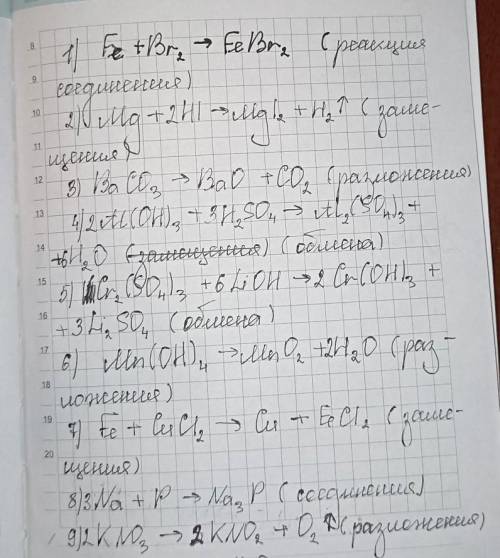 8
1) Fe + Br₂ → FeBr₂ (реакция
9
соединения)
10
2) Mg + 2HI → MgI₂ + H₂↑ (заме-
11
щения)
12
3) BaCO₃ → BaO + CO₂ (разложения)
13
4) 2Al(OH)₃ + 3H₂SO₄ → Al₂(SO₄)₃ +
14
+6H₂O (замещения) (обмена)
15
5) Cr₂(SO₄)₃ + 6LiOH → 2Cr(OH)₃ +
16
+ 3Li₂SO₄ (обмена)
17
6) Mn(OH)₄ → MnO₂ + 2H₂O (раз-
18
ложения)
19
7) Fe + CuCl₂ → Cu + FeCl₂ (заме-
20
щения)
8) 3Na + P → Na₃P (соединения)
9) 2KNO₃ → 2KNO₂ + O₂↑ (разложения)